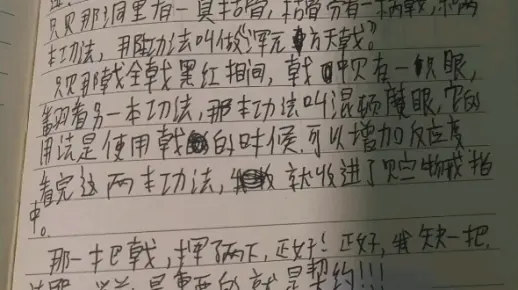 只见那洞里有一具枯骨,枯骨旁有一柄戟,和两
本功法,那功法叫做《浑元方天戟》。
只见那戟全戟黑红相间,戟中只有一只眼,
翻看另一本功法,那本功法叫混顿魔眼,它的
用法是使用戟的时候,可以增加反应度
看完这两本功法,就收进了贮物戒指
中。
那一把戟,挥了两下,正好!正好,我缺一把,
是重要的就是契约!!!